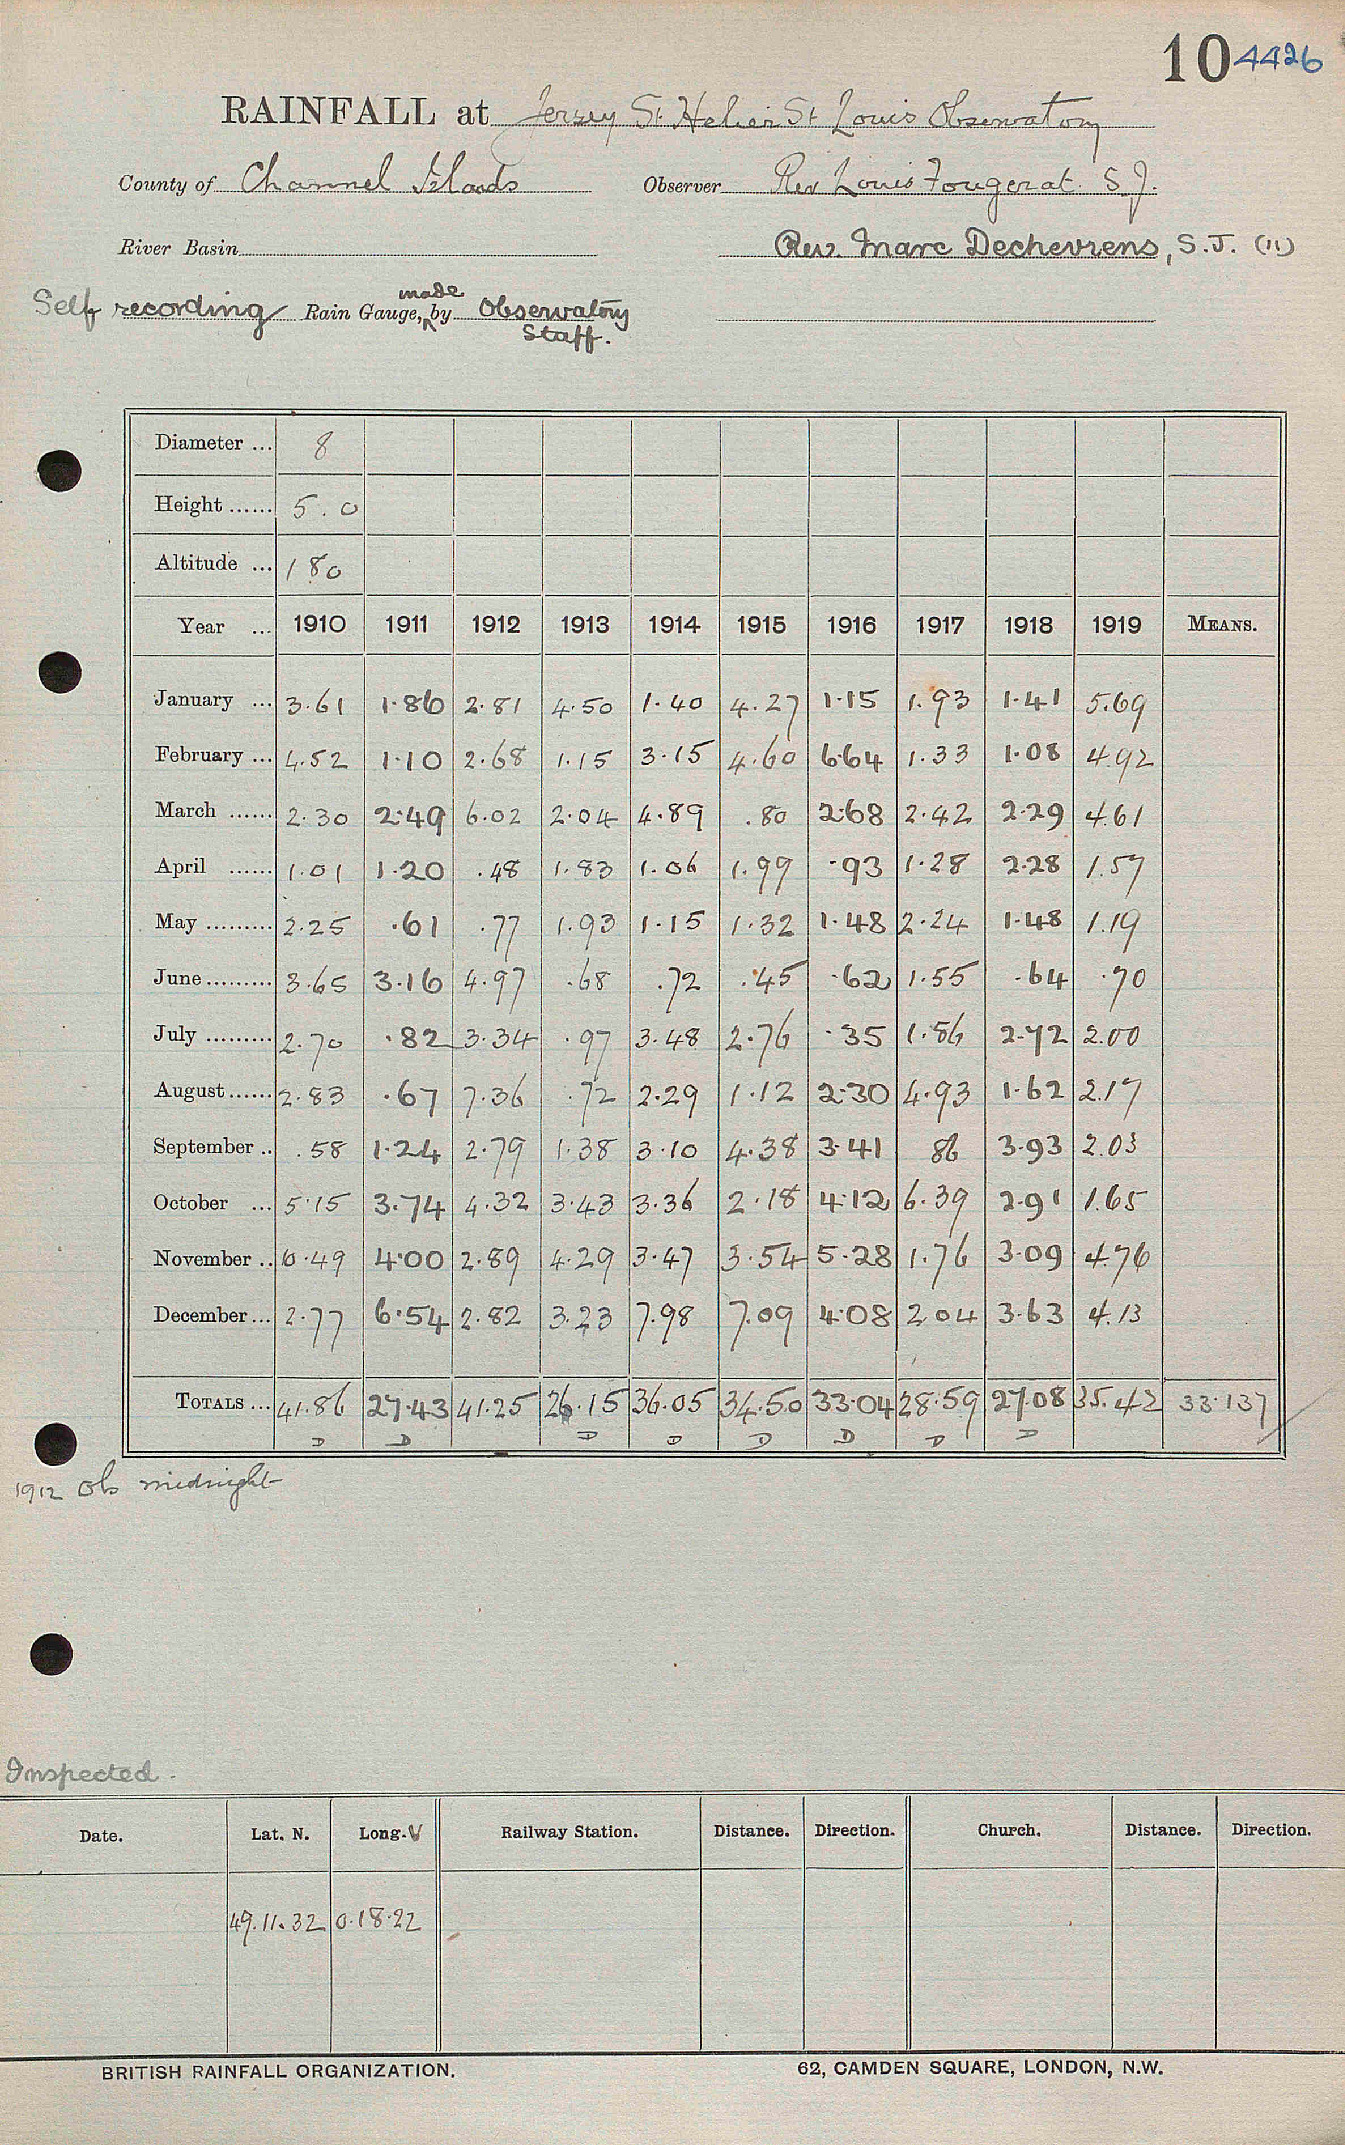 10 4426
RAINFALL at Jersey St Helier St Louis Observatory
County of Channel Islands Observer Rev Louis Fougerat. S.J.
River Basin Rev. Marc Dechevrens, S.J. (11)
Self recording Rain Gauge, made by Observatory
Staff.
Diameter ... 8
Height ...... 5.0
Altitude ... 180
Year ... 1910 1911 1912 1913 1914 1915 1916 1917 1918 1919 MEANS.
January ... 3.61 1.86 2.81 4.50 1.40 4.27 1.15 1.93 1.41 5.69
February ... 4.52 1.10 2.68 1.15 3.15 4.60 6.64 1.33 1.08 4.92
March ...... 2.30 2.49 6.02 2.04 4.89 .80 2.68 2.42 2.29 4.61
April ...... 1.01 1.20 .48 1.83 1.06 1.99 .93 1.28 2.28 1.57
May ......... 2.25 .61 .77 1.93 1.15 1.32 1.48 2.24 1.48 1.19
June ......... 3.65 3.16 4.97 .68 .72 .45 .62 1.55 .64 .70
July ......... 2.70 .82 3.34 .97 3.48 2.76 .35 1.86 2.72 2.00
August ...... 2.83 .67 7.36 .72 2.29 1.12 2.30 4.93 1.62 2.17
September .. .58 1.24 2.79 1.38 3.10 4.38 3.41 86 3.93 2.03
October ... 5.15 3.74 4.32 3.43 3.36 2.18 4.12 6.39 2.91 1.65
November .. 10.49 4.00 2.89 4.29 3.47 3.54 5.28 1.76 3.09 4.76
December ... 2.77 6.54 2.82 3.23 7.98 7.09 4.08 2.04 3.63 4.13
TOTALS ... 41.86 27.43 41.25 26.15 36.05 34.50 33.04 28.59 27.08 35.42 33.137
D D D D D D D D
1912 Ob midnight
Inspected.
Date. Lat. N. Long. W Railway Station. Distance. Direction. Church. Distance. Direction.
49.11.32 0.18.22
BRITISH RAINFALL ORGANIZATION. 62, CAMDEN SQUARE, LONDON, N.W.